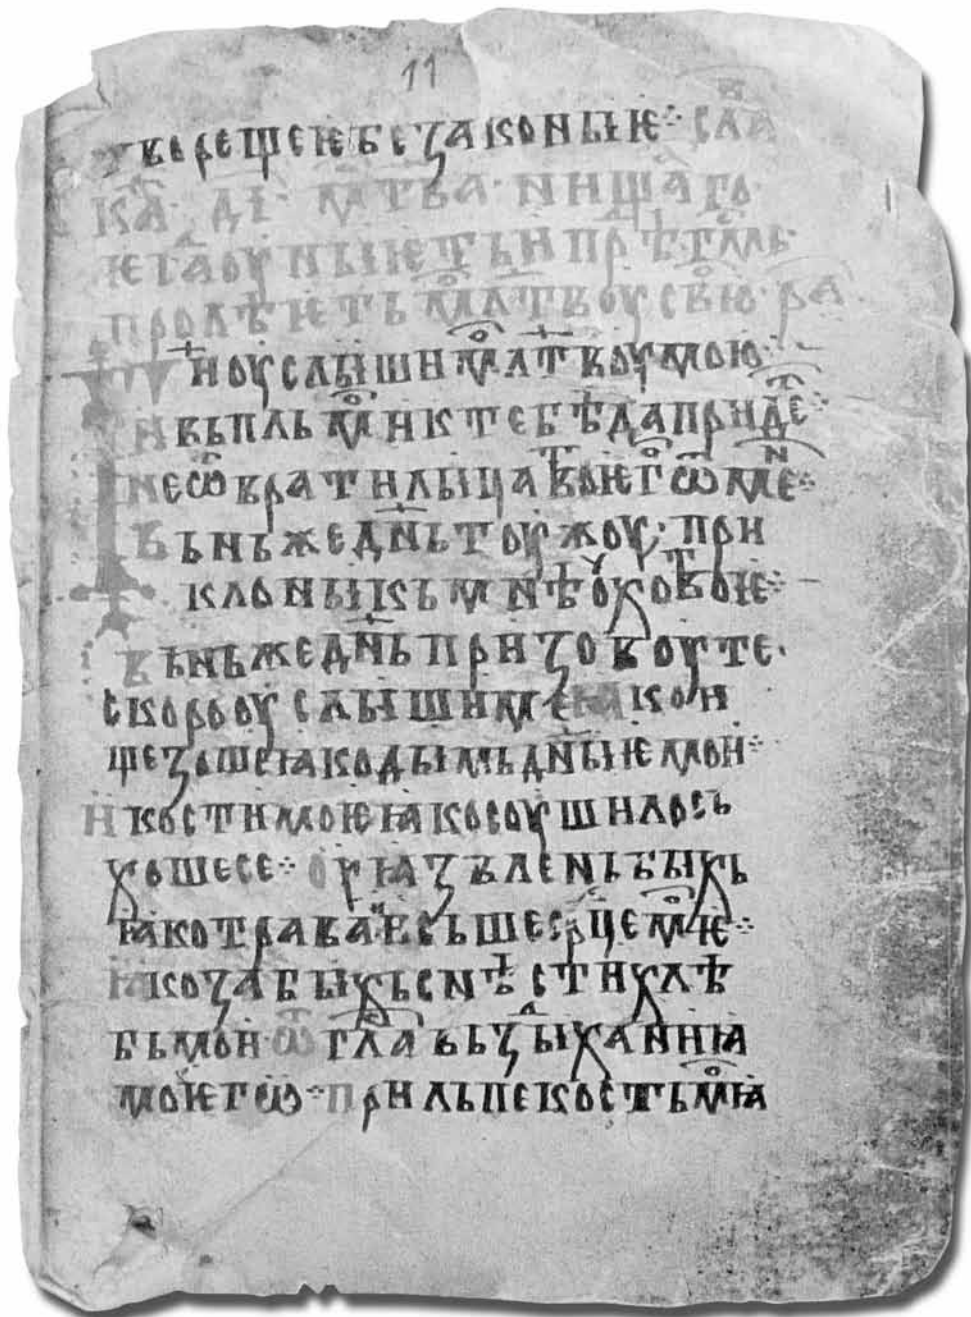 11
творещеѥ безаконыѥ·:· сла
ка· ді· мтва· нищаго·
ѥгⷣа оуныѥть и прѣⷣ г҃мь
пролѣѥть млⷮвоу свою· ра
Г҃и оуслыши моⷧтвоу мою·
и вьпль мои к тебѣ да придеⷮ·:·
не ѿврати лица твоѥго ѿ меⷩ·:·
вь нь же дн҃ь тоужоу· при
клоны кь мнѣ оухо твоѥ·:·
вь нь же дн҃ь призовоу те·
скоро оуслыши ме ꙗко и
щезоше ꙗко дымь дн҃ыѥ мои·:·
и кости моѥ ꙗко соушило сь
хоше се·:· оуꙗзвлень быхь
ꙗко трава и исьше срⷣце моѥ·:·
ꙗко забыхь снѣсти хлѣ
бь мои· ѿ глⷭа вьздыханиꙗ
моѥго·:· прильпе кость моꙗ